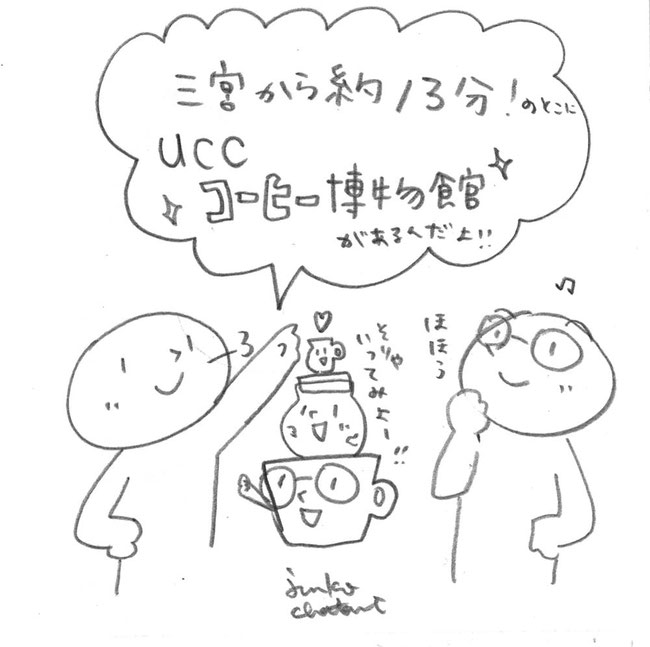 三宮から約13分!のとこに
UCC
コーヒー博物館
があるんだよ!!
そりゃ
いってみよー!!
ほほう
junko